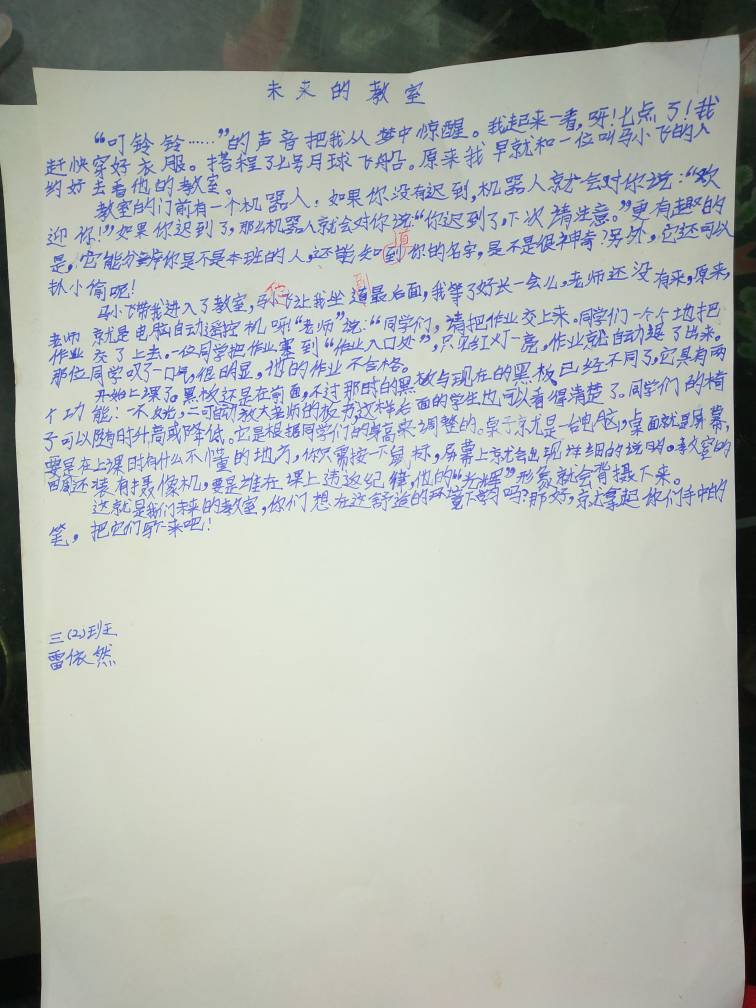 未来的教室
“叮铃铃……”的声音把我从梦中惊醒。我起来一看,呀!七点了!我
赶快穿好衣服。搭程了七号月球飞船。原来我早就和一位叫马小飞的人
约好去看他的教室。
教室的门前有一个机器人:如果你没有迟到,机器人就会对你说:“欢
迎你!”如果你迟到了,那么机器人就会对你说:“你迟到了,下次请注意。”更有趣的
是,它能分辨你是不是本班的人,还能知道你的名字,是不是很神奇?另外,它还可以
扒小偷呢!
马小飞带我进入了教室,马小飞让我坐到最后面,我等了好长一会儿,老师还没有来,原来,
老师就是电脑自动遥控机呀!“老师”说:“同学们,请把作业交上来。同学们一个个地把
作业交了上去。一位同学把作业塞到“作业入口处”,只见红灯一亮,作业就自动退了出来。
那位同学叹了一口气,很明显,他的作业不合格。
开始上课了。黑板还是在前面,不过那时的黑板与现在的黑板已经不同了,它具有两
个功能:一不反光,二可自动放大老师的板书,这样后面的学生也可以看得清楚了。同学们的椅
子可以随时升高或降低。它是根据同学们的身高来调整的。桌子就是一台电脑,桌面就是屏幕,
要是在上课时有什么不懂的地方,你只需按一下鼠标,屏幕上就会出现详细的说明。教室的
四周还装有摄像机,要是谁在课上违返纪律,他的“光辉”形象就会背摄下来。
这就是我们未来的教室,你们想在这舒适的环境下学习吗?那好,就拿起你们手中的
笔,把它们写下来吧!
三(2)班
雷依然